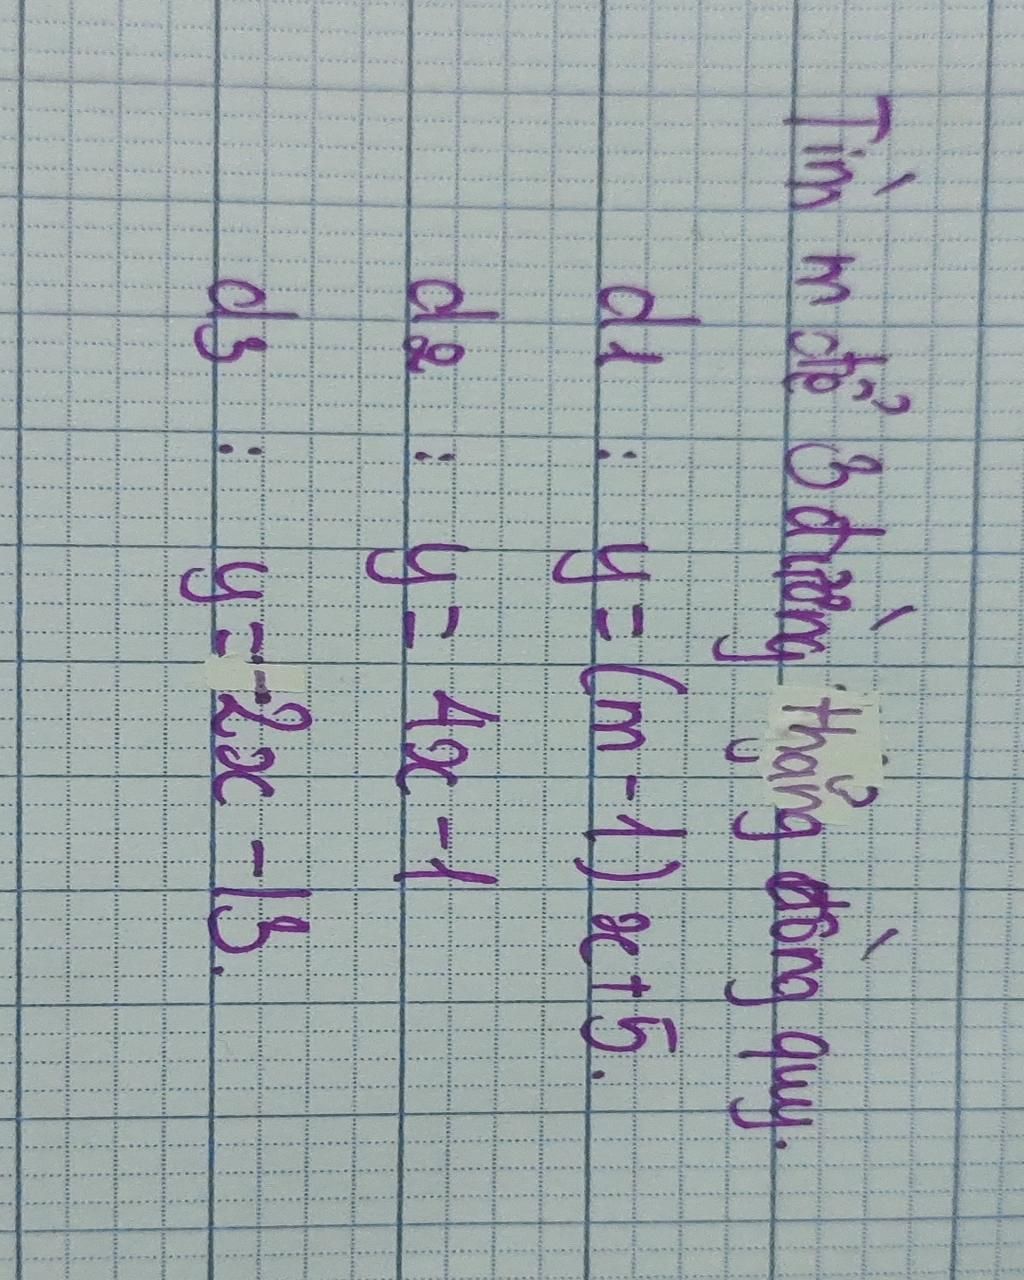 Tìm m để 3 đường thẳng đồng quy.
d1 : y = (m - 1) x + 5.
d2 : y = 4x - 1
d3 : y = -2x - 13.